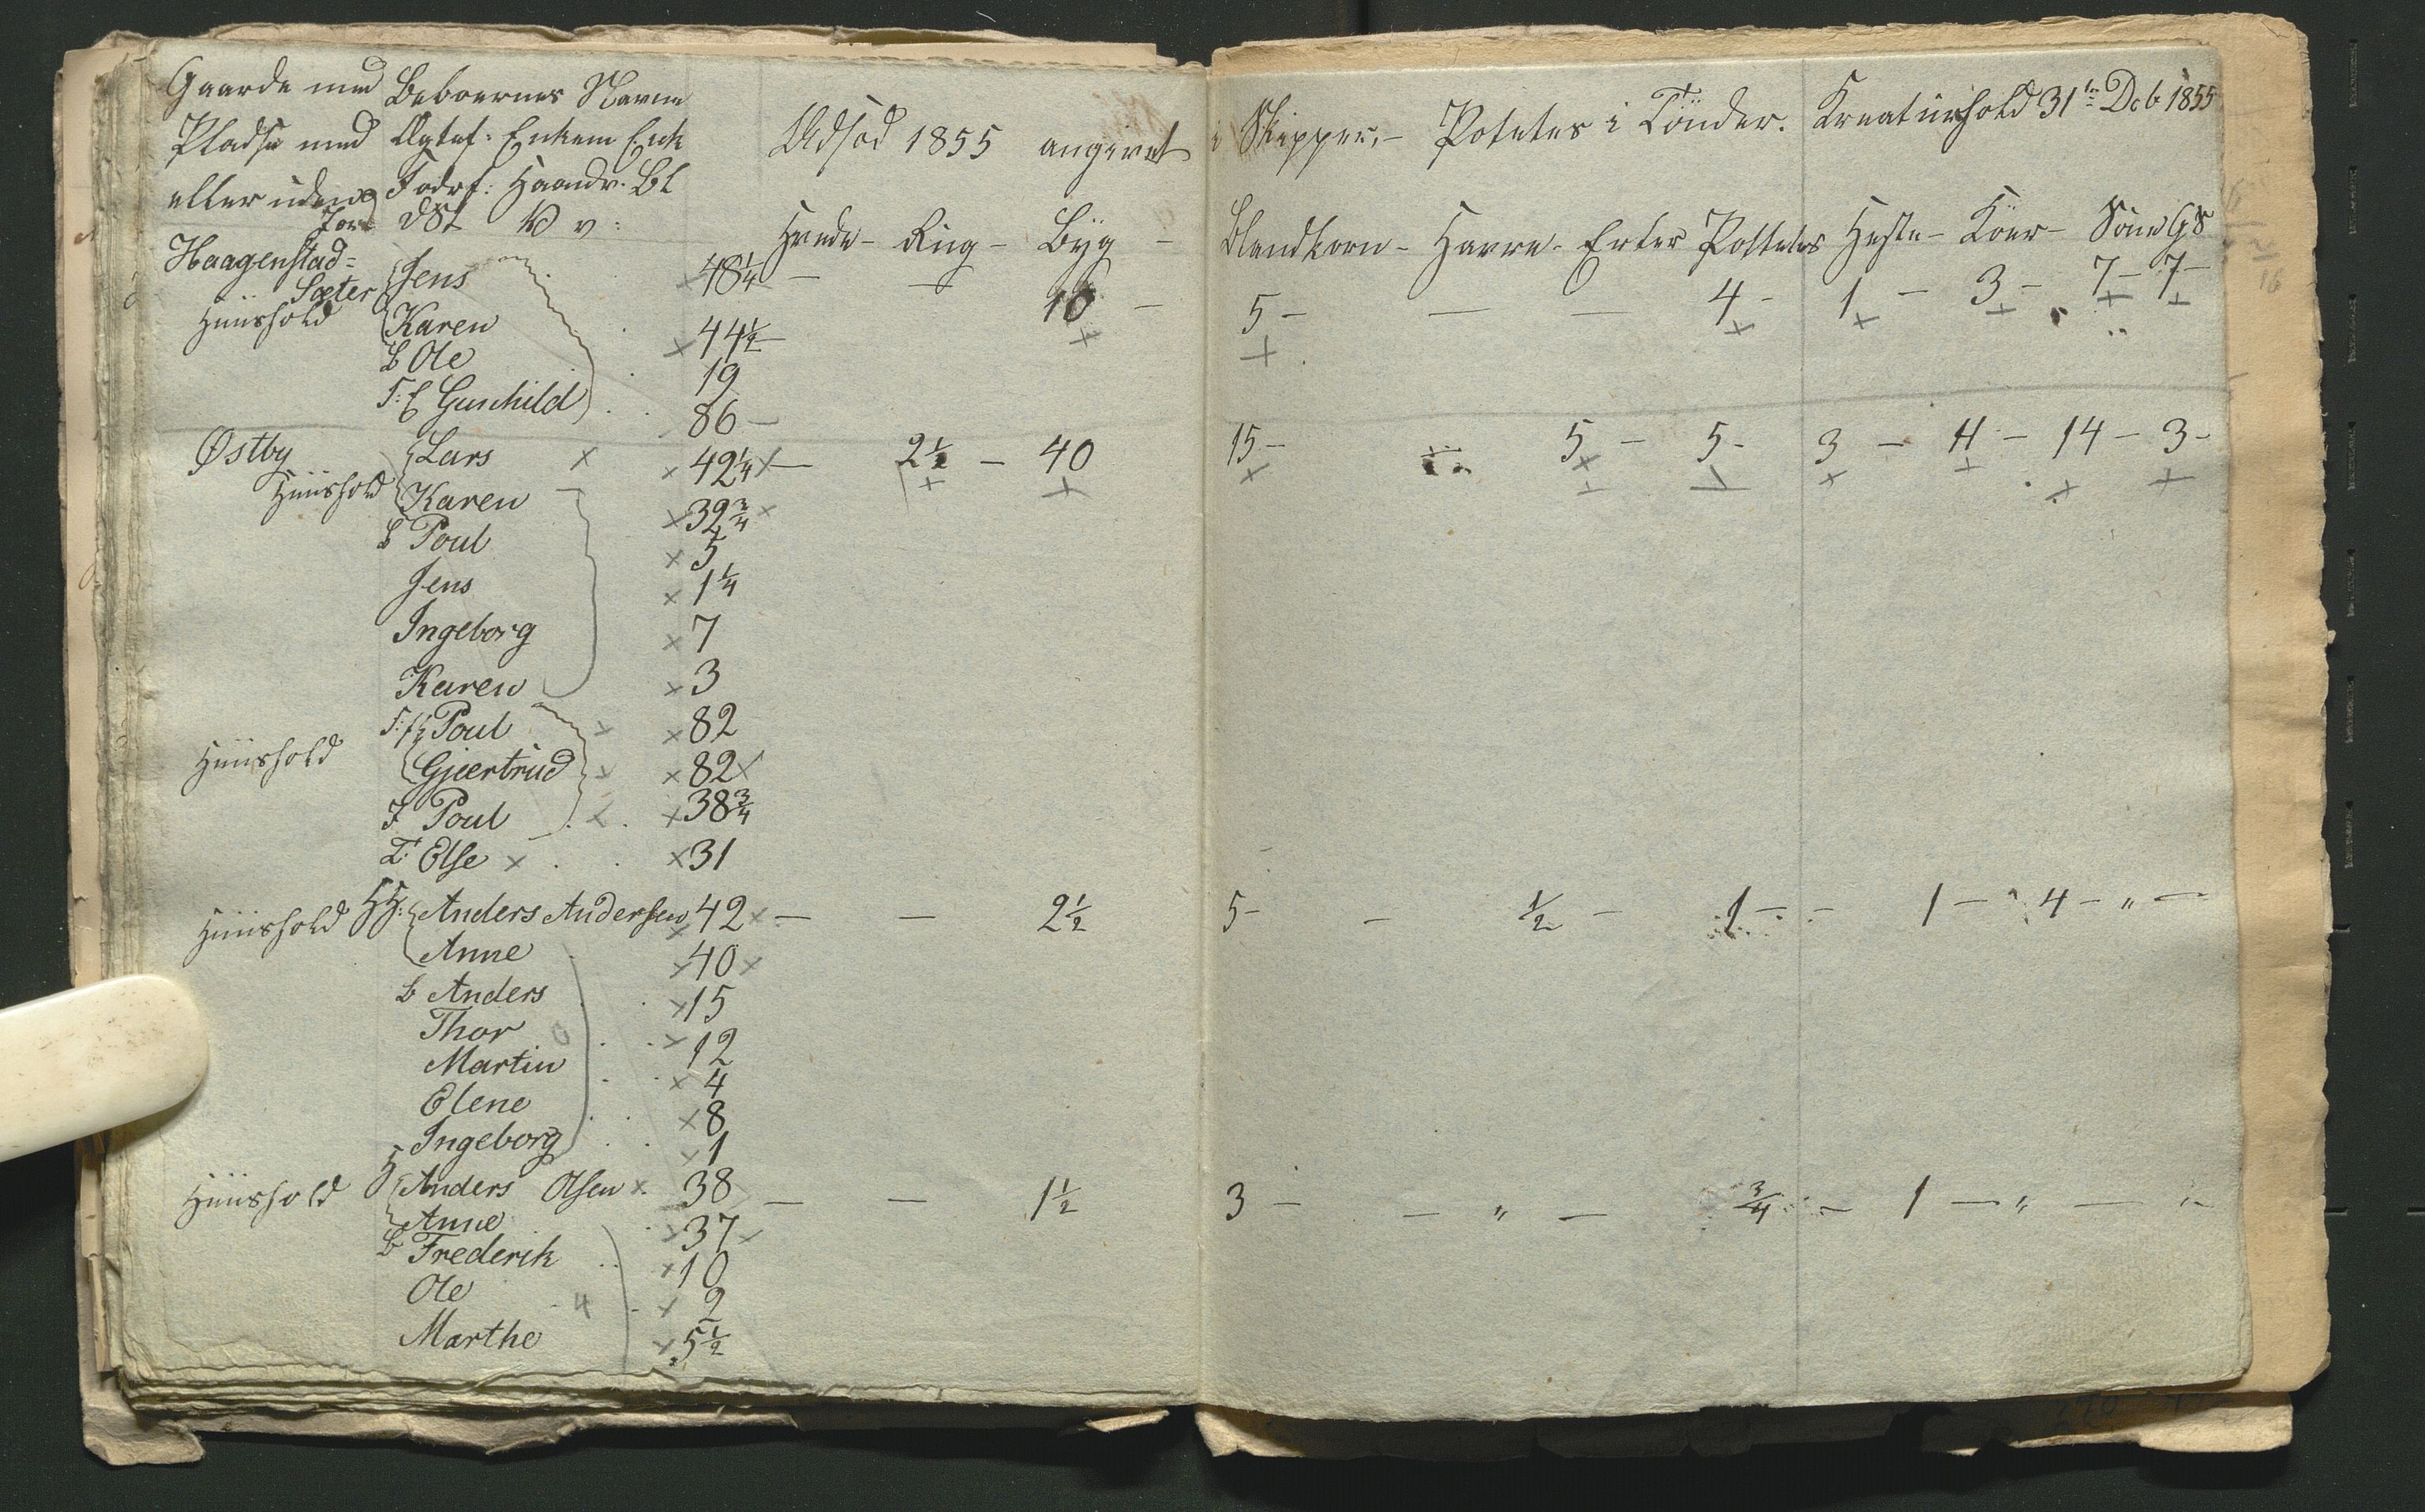 Gaarde med Beboernes Navne
Pladse med Ægtef: Enkem Enk
eller uden Fodrf: Haandv. Bl
Jord DSt V v:
Udsæd 1855 angivet i Skipper,- Potetes i Tönder. Kreaturhold 31te Dcb 1855
Hvede- Rug- Byg- Blandkorn- Havre- Erter Potteter Heste- Köer- Söue GS
Haagenstad= Jens 48¼ — — 10 — 5 — — — 4 - 1 - 3 - 7 - 7 -
Sæter
Huushold Karen 44½ -
B Ole 19
F: E Gunhild 86 -
Østby Lars 42¼ — 2½ — 40 15 - 5 - 5 - 3 - 11 - 14 - 3 -
Huushold Karen 39¾
B Poul 5
Jens 1¼
Ingeborg 7
Karen 3
F: Poul 82
Huushold Gjertrud 82
J Poul 38¾
T: Else 31
Huushold HH: Anders Andersen 42 — — 2½ 5 - — ½ - 1 - - 1 - 4 - " —
Anne 40
B Anders 15
Thor 12
Martin 4
Elene 8
Ingeborg 1
Huushold Anders Olsen 38 — — 1½ 3 - — " — ¾ - 1 — " — " -
Anne 37
B Frederik 10
Ole 4 2
Marthe 5½